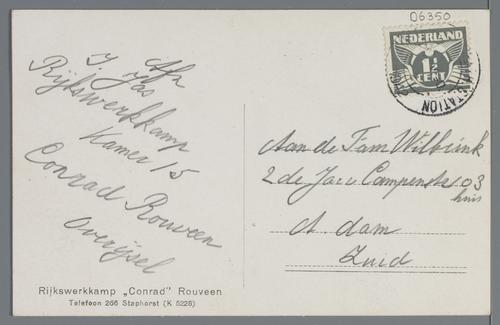 06350
NEDERLAND
1½
CENT
STATION
Afz
J. Jas
Rijkswerkkamp
Kamer 15
Conrad Rouveen
Overijsel
Aan de Fam Wilbrink
2 de Jac v Campenstr 103
huis
A. dam
Zuid
Rijkswerkkamp „Conrad” Rouveen
Telefoon 266 Staphorst (K 5225)